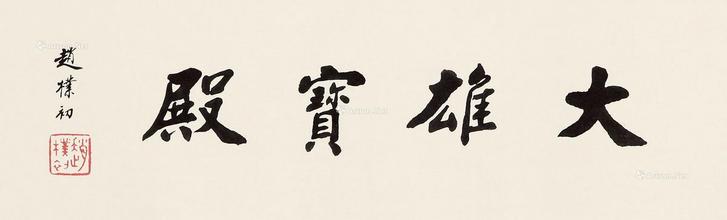 大雄寶殿
趙樸初
趙樸初